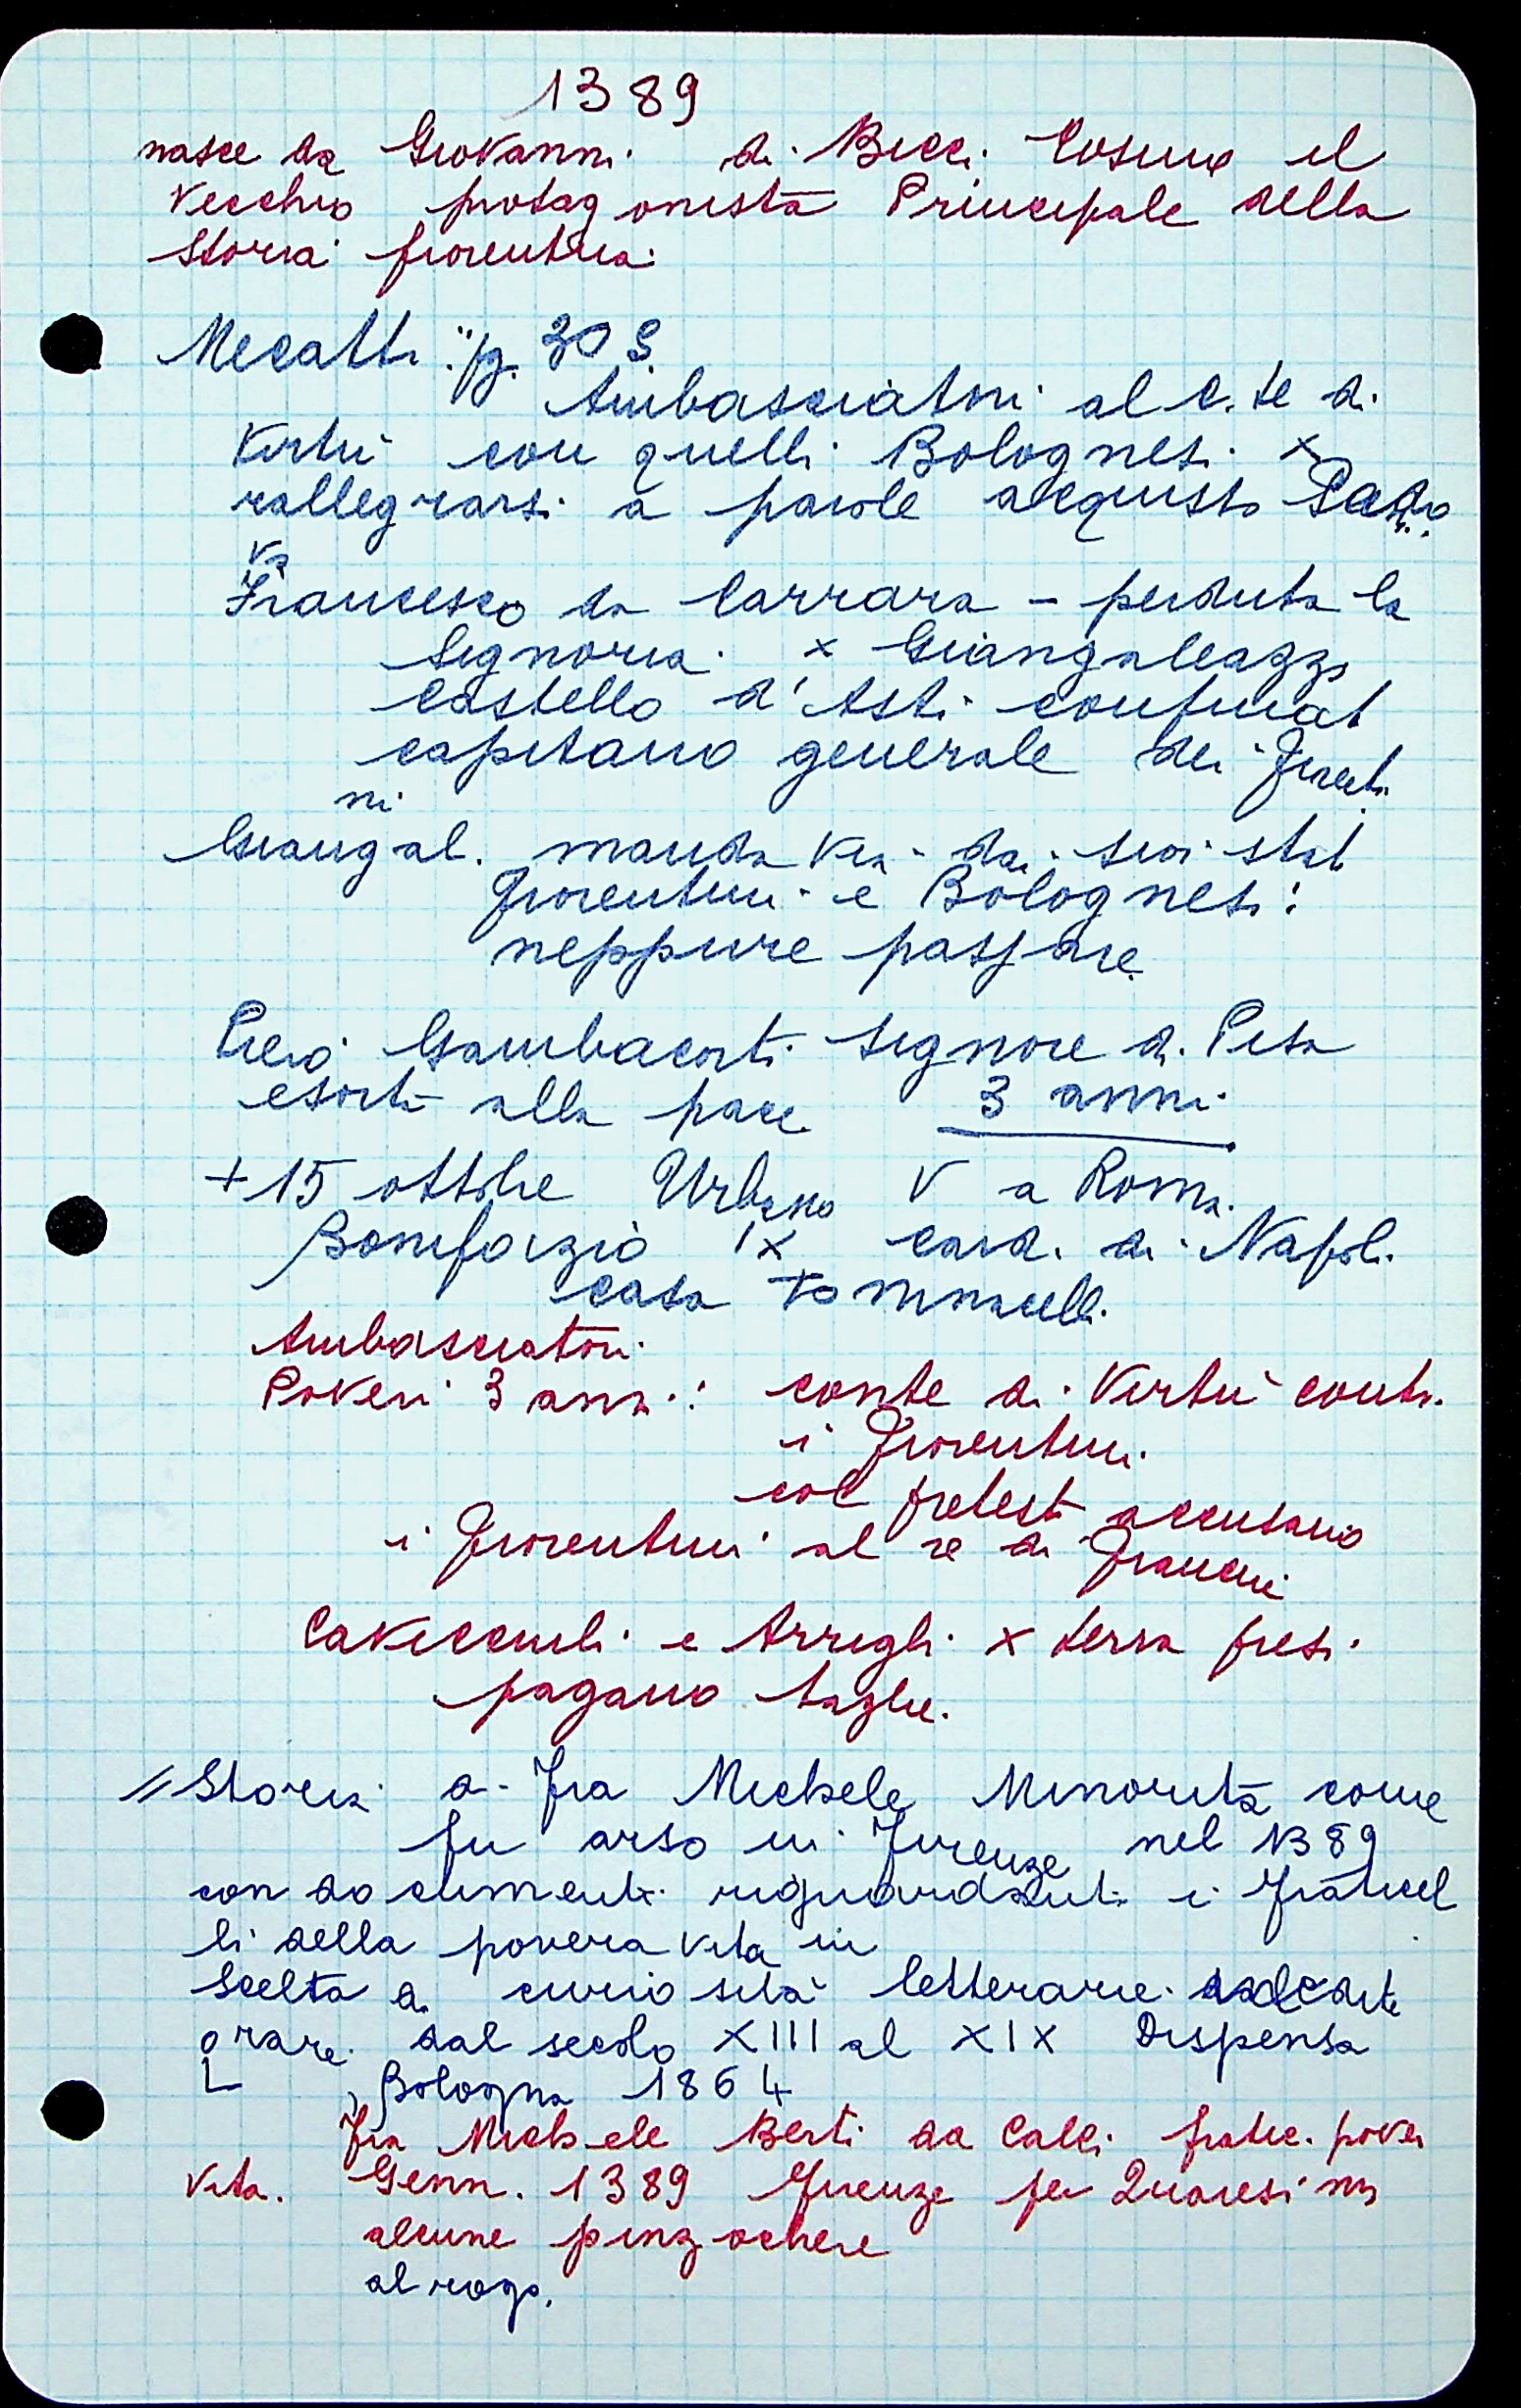 1389
nasce da Giovanni di Bicci Cosimo il
Vecchio protagonista Principale della
storia fiorentina.
Mecatti "pg. 309
Ambasciatori al C.te di
Virtù con quelli Bolognesi x
rallegrarsi a parole acquisto Pado
va
Francesco da Carrara - perduta la
Signoria x Giangaleazzo
Castello d'Asti confinat
capitano generale dei Fiorenti
ni
Giangal. manda via dai suoi stati
Fiorentini e Bolognesi:
neppure passare
Piero Gambacorti Signore di Pisa
esorta alla pace 3 anni
+ 15 ottobre Urbano V a Roma.
Bonifazio IX card. di Napoli
casa Tommacelli.
Ambasciatori
Poveri 3 anni: conte di Virtù contr.
i Fiorentini
col pretesto accusano
i Fiorentini al re di Francia
Cavicciuli e Arrighi x terra presi
pagano taglie.
// Storia di Fra Michele Minorita come
fu arso in Firenze nel 1389
con documenti riguardanti i Fraticel
li della povera vita in
Scelta di curiosità letterarie
o rare dal secolo XIII al XIX Dispensa
L , Bologna 1864
Fra Michele Berti da Calci fratic. pover
vita. Genn. 1389 Firenze per Quaresima
alcune pinzochere
al rogo.